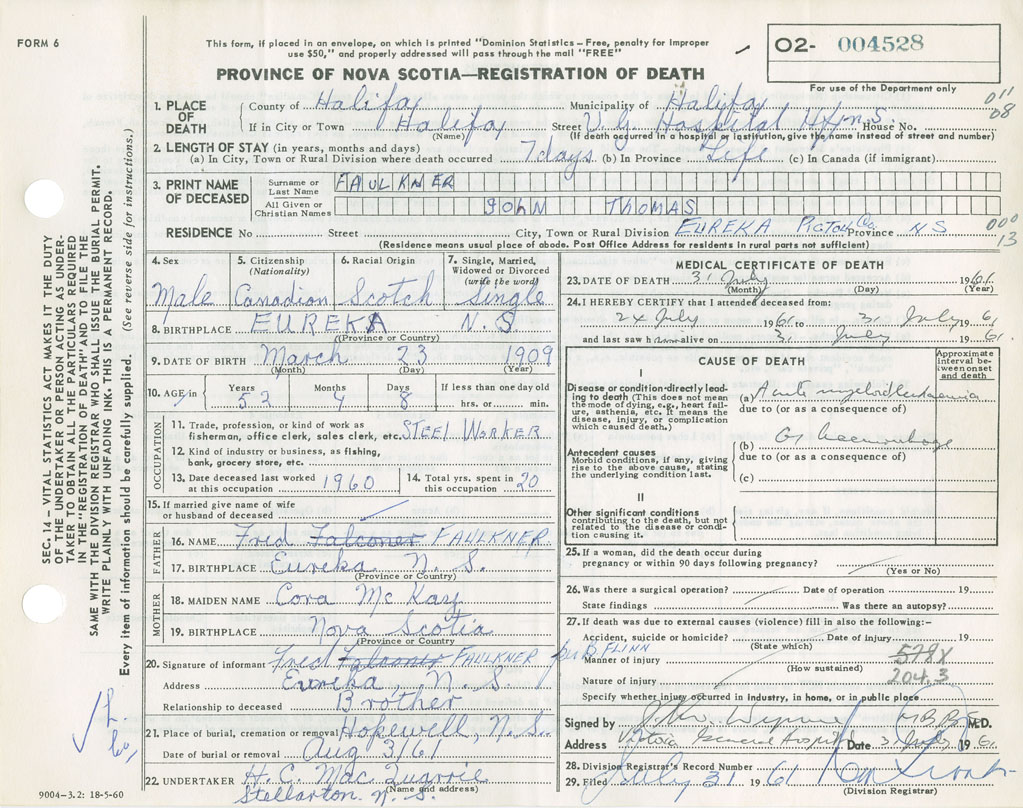 FORM 6
This form, if placed in an envelope, on which is printed "Dominion Statistics – Free, penalty for improper
use $50," and properly addressed will pass through the mail "FREE"
O2- 004528
PROVINCE OF NOVA SCOTIA—REGISTRATION OF DEATH
For use of the Department only
1. PLACE OF DEATH
County of Halifax Municipality of Halifax 011
If in City or Town Halifax Street V.G. Hospital Hfx n.s. House No. 08
(Name) (If death occurred in a hospital or institution, give the name instead of street and number)
2. LENGTH OF STAY (in years, months and days)
(a) In City, Town or Rural Division where death occurred 7 days (b) In Province Life (c) In Canada (if immigrant)
3. PRINT NAME OF DECEASED
Surname or Last Name FAULKNER
All Given or Christian Names JOHN THOMAS
RESIDENCE No Street City, Town or Rural Division EUREKA PICTOU Co. Province NS 000
13
(Residence means usual place of abode. Post Office Address for residents in rural parts not sufficient)
4. Sex Male
5. Citizenship (Nationality) Canadian
6. Racial Origin Scotch
7. Single, Married, Widowed or Divorced (write the word) Single
8. BIRTHPLACE EUREKA N.S
(Province or Country)
9. DATE OF BIRTH March 23 1909
(Month) (Day) (Year)
10. AGE in Years 52 Months 4 Days 8 If less than one day old hrs. or min.
OCCUPATION
11. Trade, profession, or kind of work as
fisherman, office clerk, sales clerk, etc. STEEL WORKER
12. Kind of industry or business, as fishing,
bank, grocery store, etc.
13. Date deceased last worked at this occupation 1960
14. Total yrs. spent in this occupation 20
15. If married give name of wife
or husband of deceased
FATHER
16. NAME Fred Falconer FAULKNER
17. BIRTHPLACE Eureka N.S.
(Province or Country)
MOTHER
18. MAIDEN NAME Cora McKay
19. BIRTHPLACE Nova Scotia
(Province or Country)
20. Signature of informant Fred Falconer FAULKNER per B FLINN
Address Eureka, N.S.
Relationship to deceased Brother
21. Place of burial, cremation or removal Hopewell, N.S.
Date of burial or removal Aug 3/61
22. UNDERTAKER H.C. MacQuarrie
(Name and address)
Stellarton N.S.
MEDICAL CERTIFICATE OF DEATH
23. DATE OF DEATH 31 July 1961
(Month) (Day) (Year)
24. I HEREBY CERTIFY that I attended deceased from:
24 July 1961 to 31 July 1961
and last saw him alive on 31 July 1961
CAUSE OF DEATH
Approximate interval between onset and death
I
Disease or condition directly leading to death (This does not mean the mode of dying, e.g., heart failure, asthenia, etc. It means the disease, injury, or complication which caused death.)
(a) Acute myeloid leukaemia
due to (or as a consequence of)
Antecedent causes
Morbid conditions, if any, giving rise to the above cause, stating the underlying condition last.
(b) GI haemorrhage
due to (or as a consequence of)
(c)
II
Other significant conditions
contributing to the death, but not related to the disease or condition causing it.
25. If a woman, did the death occur during
pregnancy or within 90 days following pregnancy?
(Yes or No)
26. Was there a surgical operation? Date of operation 19
State findings Was there an autopsy?
27. If death was due to external causes (violence) fill in also the following:—
Accident, suicide or homicide? Date of injury 19
(State which)
Manner of injury 578X
(How sustained)
Nature of injury 204.3
Specify whether injury occurred in industry, in home, or in public place
Signed by Wynne M.B.B.S. M.D.
Address Victoria General Hospital Date 31 July 1961
28. Division Registrar's Record Number
29. Filed July 31 1961
(Division Registrar)
SEC. 14 – VITAL STATISTICS ACT MAKES IT THE DUTY
OF THE UNDERTAKER OR PERSON ACTING AS UNDER-
TAKER TO OBTAIN ALL THE PARTICULARS REQUIRED
IN THE "REGISTRATION OF DEATH" AND TO FILE THE
SAME WITH THE DIVISION REGISTRAR WHO SHALL ISSUE THE BURIAL PERMIT.
WRITE PLAINLY WITH UNFADING INK. THIS IS A PERMANENT RECORD.
Every item of information should be carefully supplied. (See reverse side for instructions.)
9004-3.2: 18-5-60